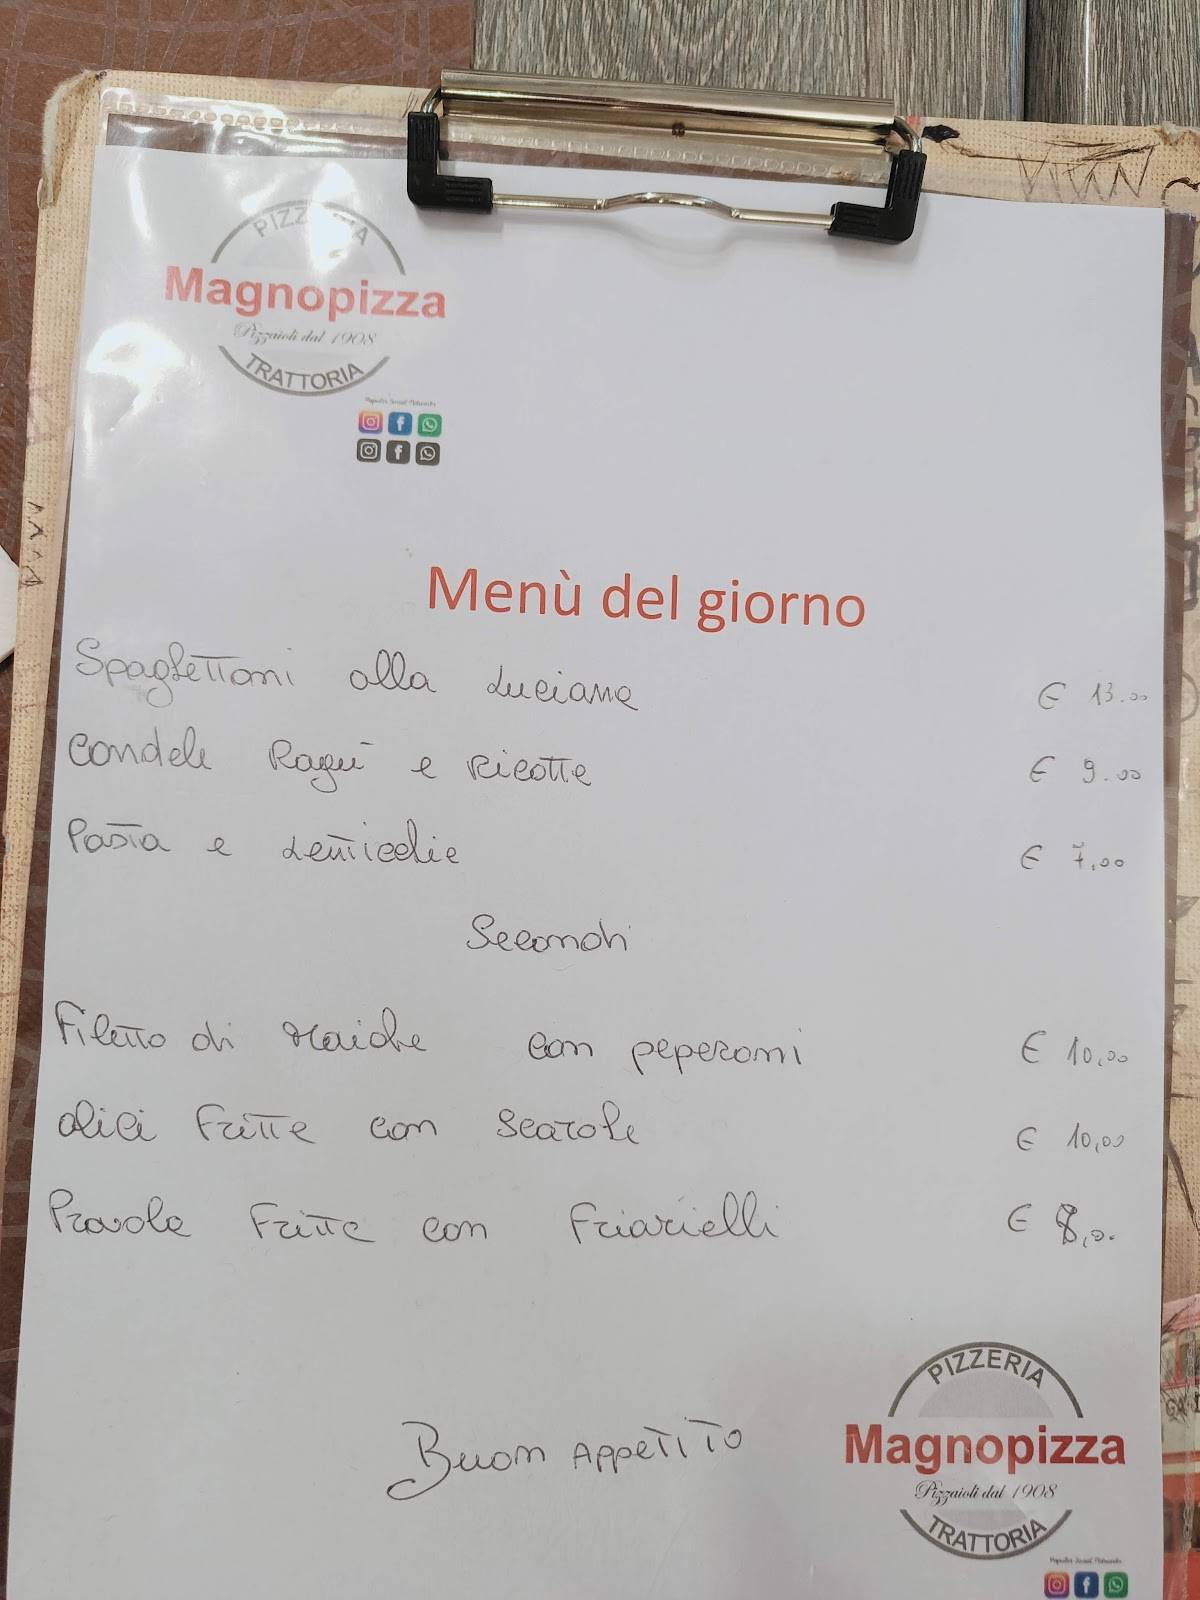 PIZZERIA
Magnopizza
Pizzaioli dal 1908
TRATTORIA
Menù del giorno
Spaghettoni alla Luciana € 13.00
Candele Ragù e Ricotta € 9.00
Pasta e Lenticchie € 7,00
Secondi
Filetto di Maiale con peperoni € 10,00
alici Fritte con Scarole € 10,00
Provola Fritta con Friarielli € 8,0.
Buon Appetito
PIZZERIA
Magnopizza
Pizzaioli dal 1908
TRATTORIA